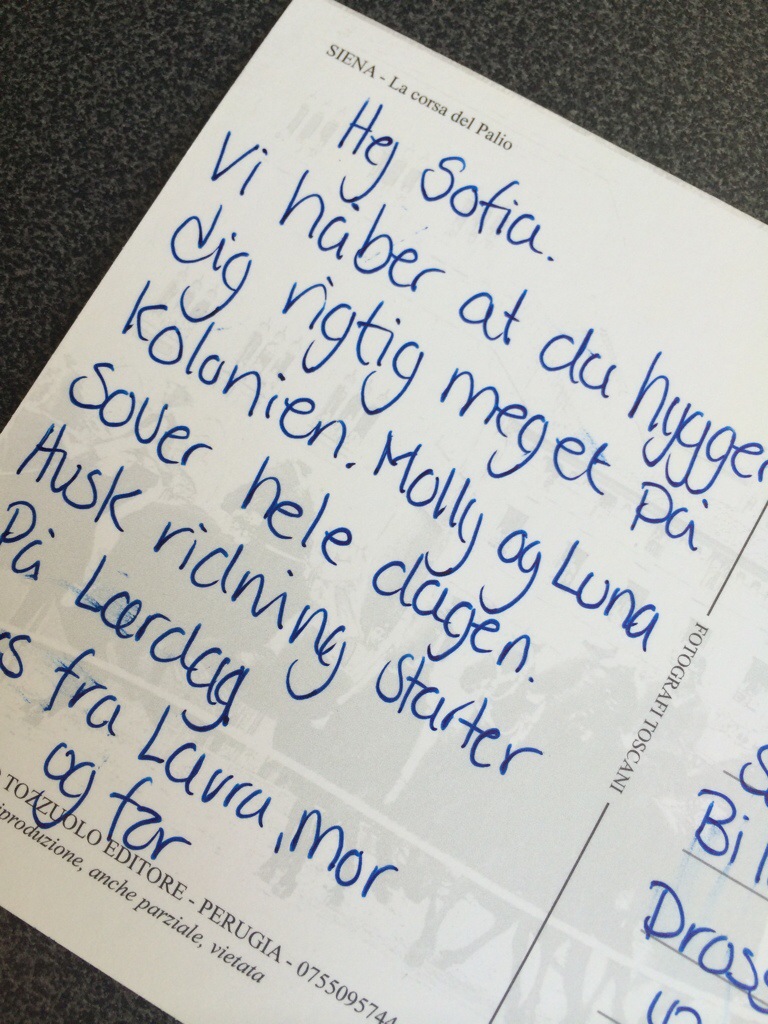 SIENA - La corsa del Palio
Hej Sofia.
Vi håber at du hygger
dig rigtig meget på
kolonien. Molly og Luna
sover hele dagen.
Husk ridning starter
På Lørdag
fra Laura, Mor
og far
TOZZUOLO EDITORE - PERUGIA - 075509574
riproduzione, anche parziale, vietata
FOTOGRAFI TOSCANI